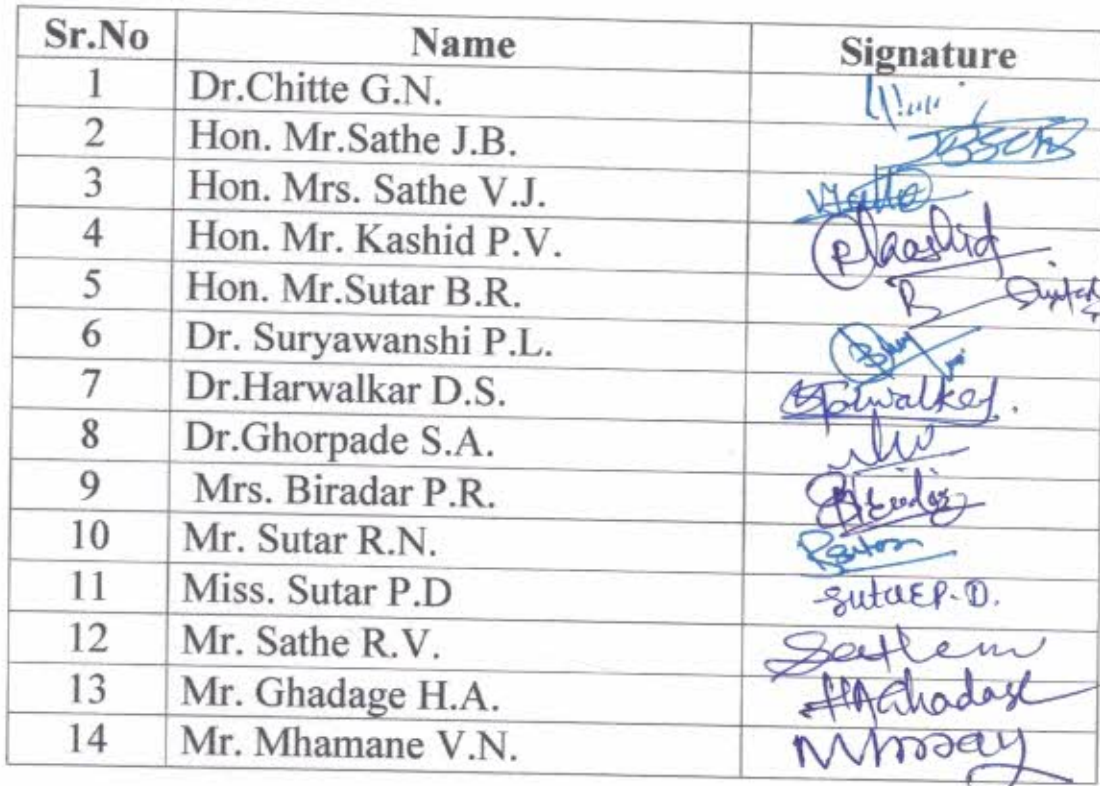 Sr.No Name Signature
1 Dr.Chitte G.N.
2 Hon. Mr.Sathe J.B.
3 Hon. Mrs. Sathe V.J.
4 Hon. Mr. Kashid P.V. PKashid
5 Hon. Mr.Sutar B.R.
6 Dr. Suryawanshi P.L.
7 Dr.Harwalkar D.S.
8 Dr.Ghorpade S.A.
9 Mrs. Biradar P.R.
10 Mr. Sutar R.N.
11 Miss. Sutar P.D Sutar P.D.
12 Mr. Sathe R.V.
13 Mr. Ghadage H.A. HAGhadage
14 Mr. Mhamane V.N.